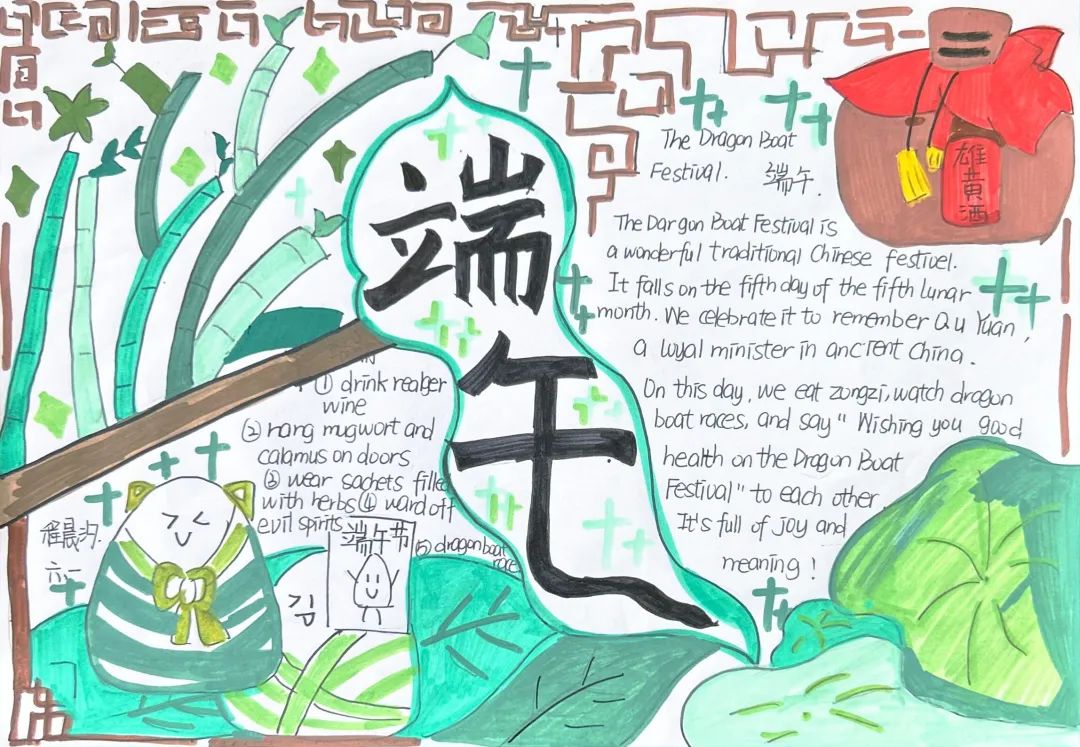 端午
The Dragon Boat
Festival. 端午.
The Dargon Boat Festival is
a wonderful traditional Chinese festivel.
It falls on the fifth day of the fifth lunar
month. We celebrate it to remember Qu Yuan,
a loyal minister in ancient China.
On this day, we eat zongzi, watch dragon
boat races, and say "Wishing you good
health on the Dragon Boat
Festival" to each other.
It's full of joy and
meaning!
雄黄酒
① drink realger
wine
② hang mugwort and
calamus on doors
③ wear sachets filled
with herbs ④ ward off
evil spirits
⑤ dragon boat
race
端午节
김
程晨汐.
六一